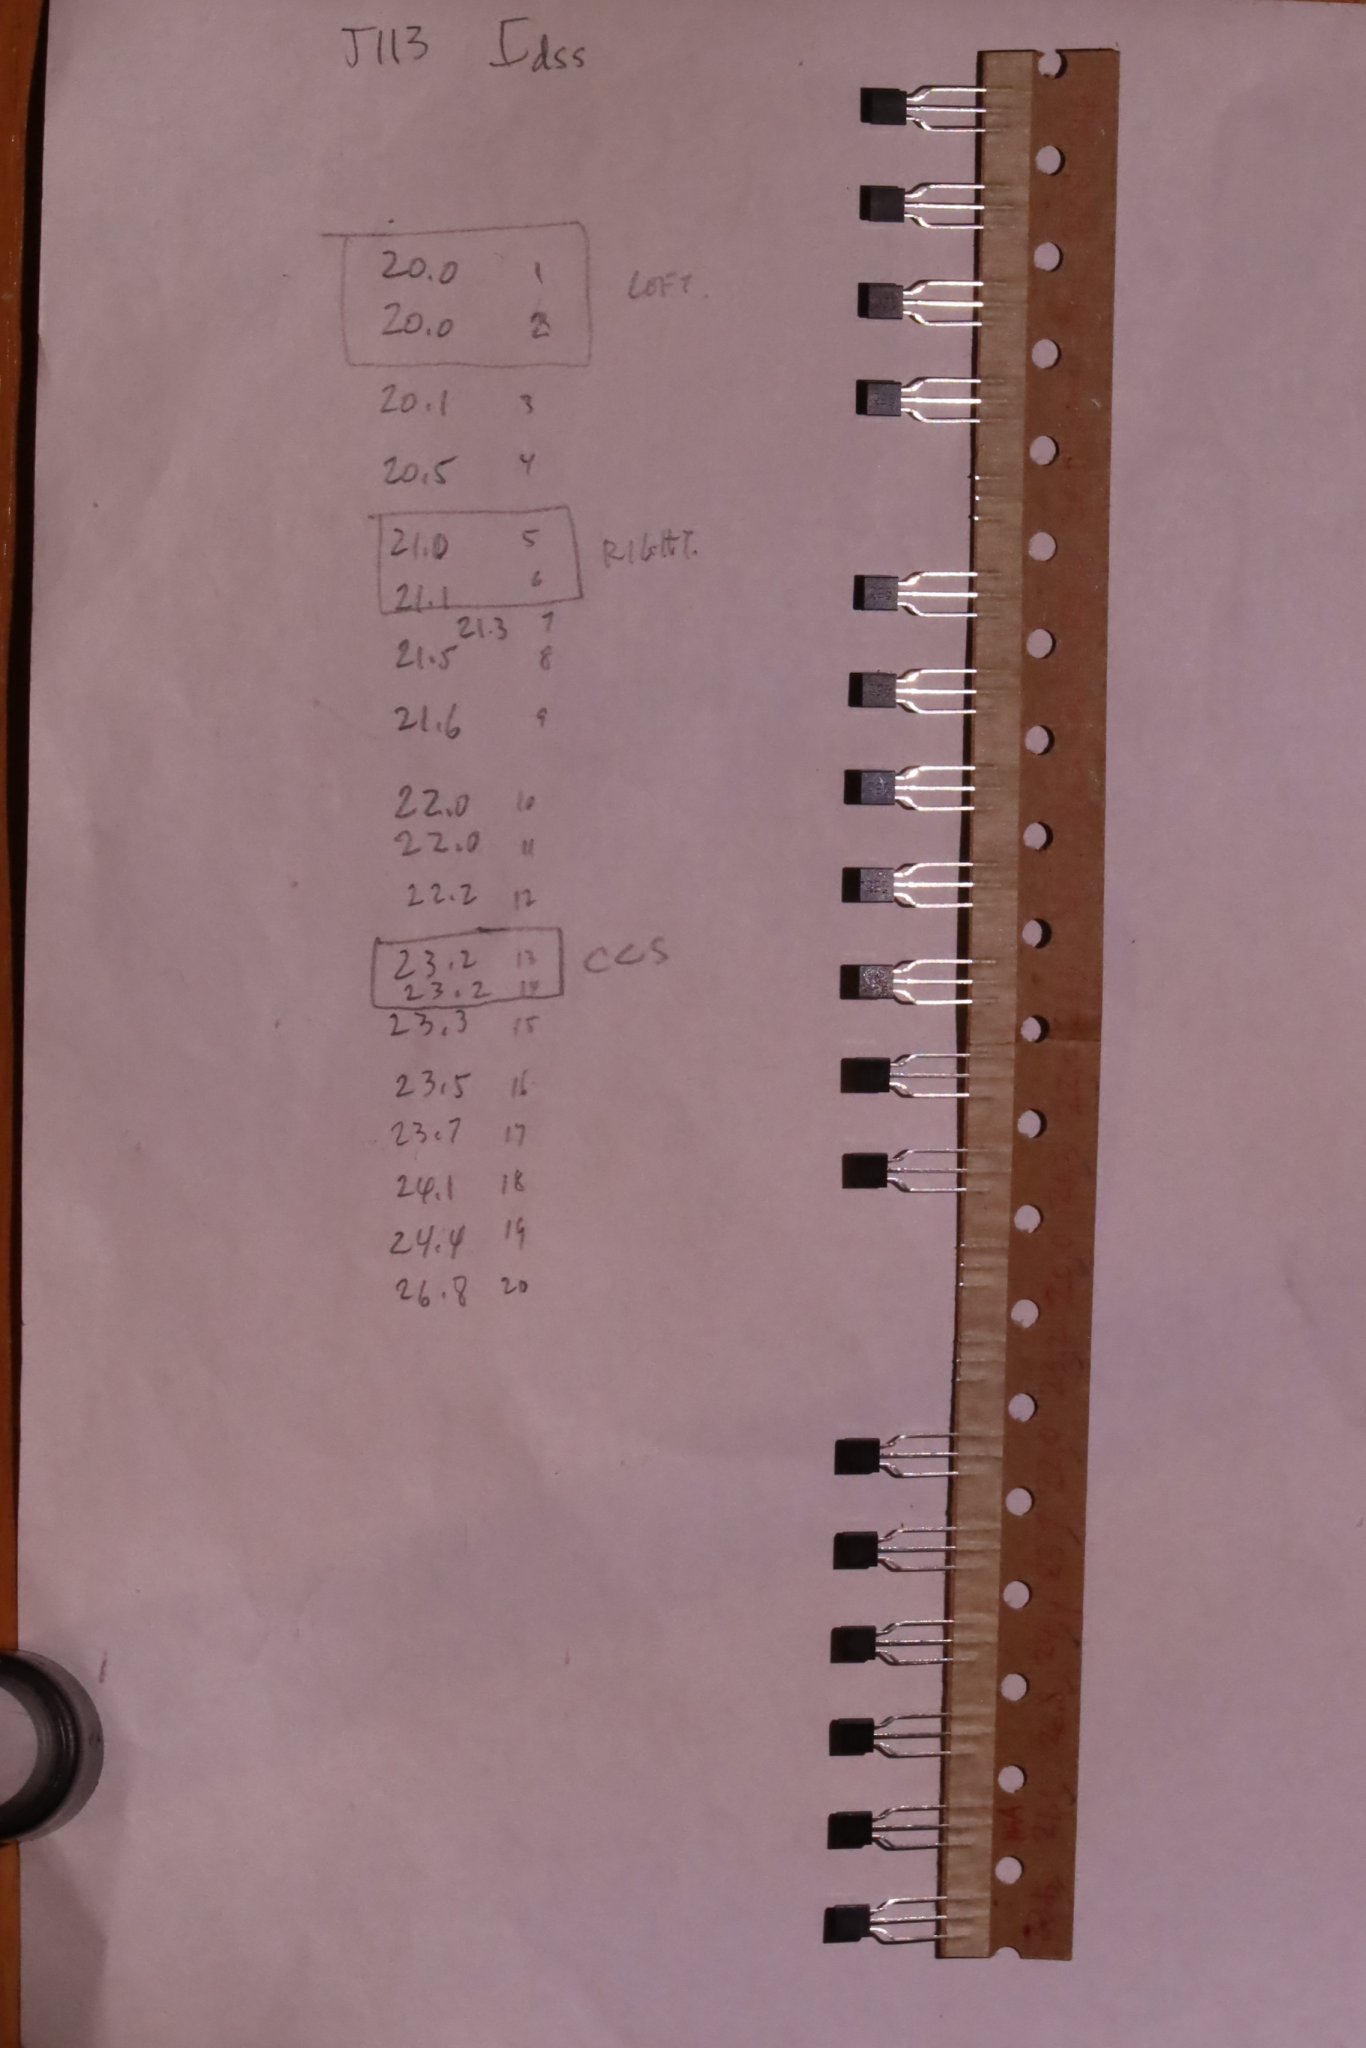 J113 Idss
20.0 1
20.0 2
LEFT.
20.1 3
20.5 4
21.0 5
RIGHT.
21.1 6
21.3 7
21.5 8
21.6 9
22.0 10
22.0 11
22.2 12
23.2 13
CCS
23.2 14
23.3 15
23.5 16
23.7 17
24.1 18
24.4 19
26.8 20
mA